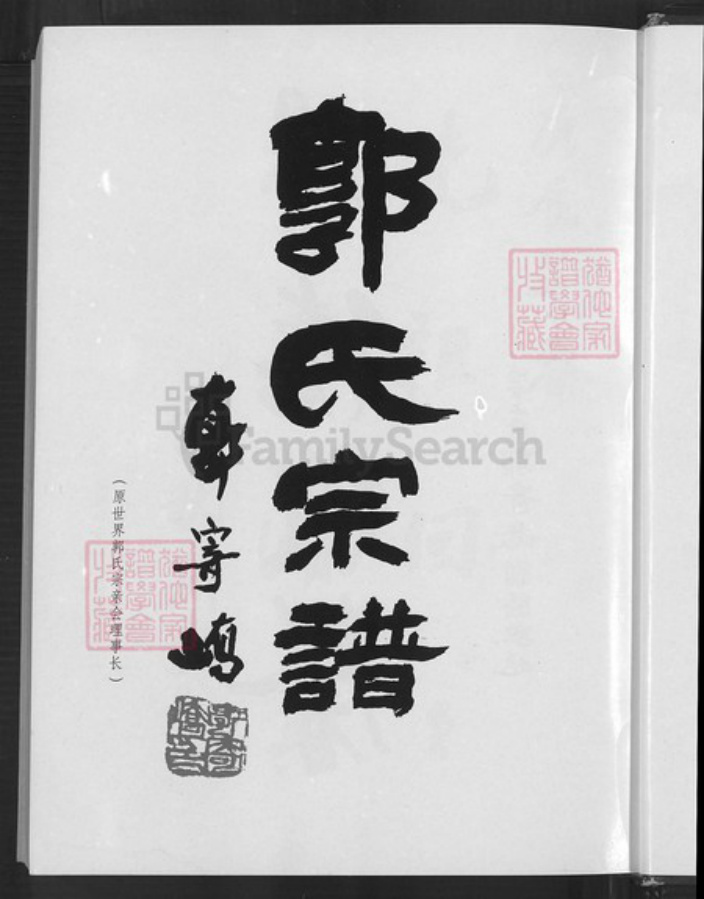 郭氏宗譜
郭寄嶠
(原世界郭氏宗亲会理事长)
猶他家
譜學會
收藏
猶他家
譜學會
收藏
FamilySearch